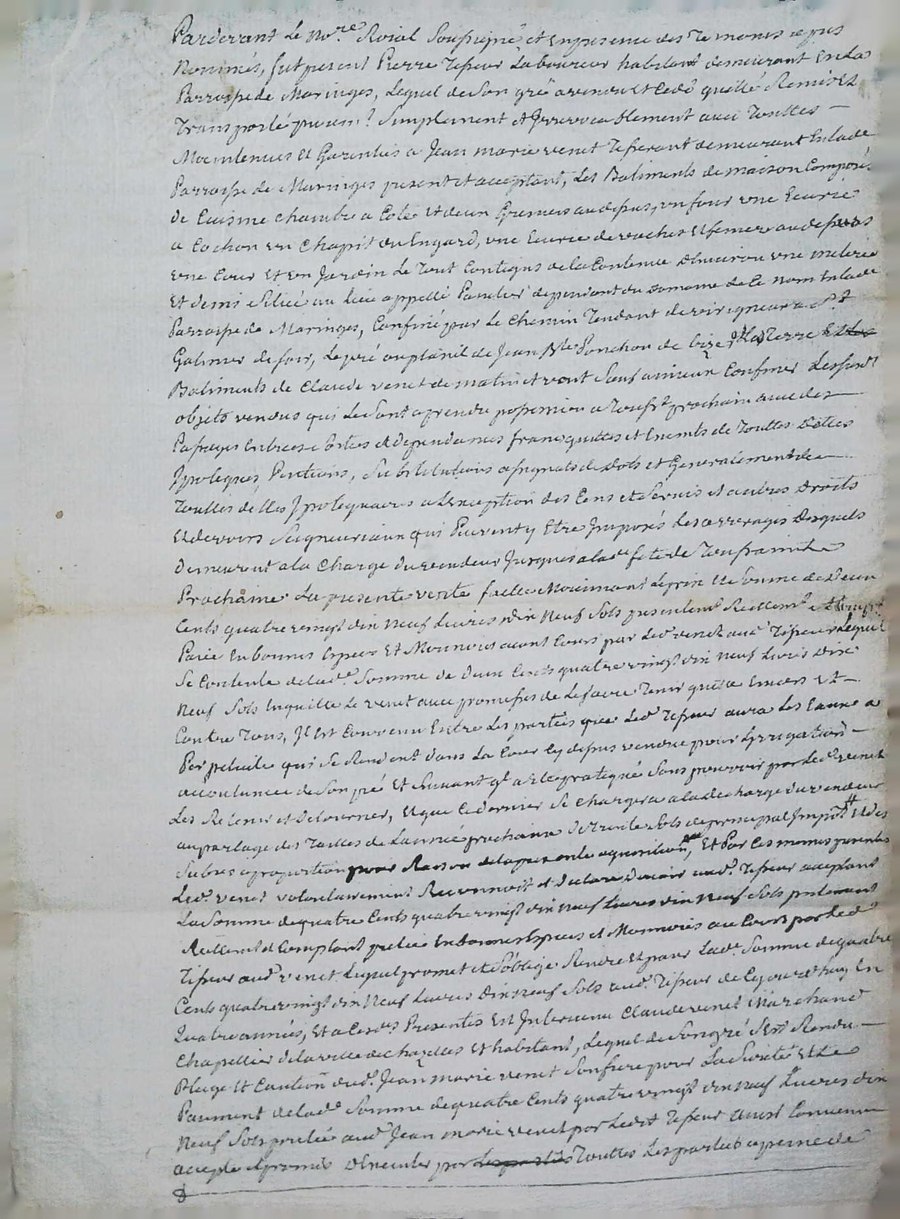 Pardevant Le Nore. Roial Soussigné et En presence des Temoins cy pus
Nommés, fut present Pierre Tisseur Laboureur habitant demeurant En La
Parroisse de Maringes, Lequel de Son gré a vendu et Cedé quitté Remis Et
Transporté purem.t Simplement et Irrevocablement avec Touttes
Maintenues et Garenties a Jean marie venet Tisserant demeurant En lade
Parroisse de Maringes present et acceptant, Les Batiments de maison Composés
de Cuisine Chambre a Coté et de un Greniers au dessus, un four une Ecurie
a Cochon un Chapit ou Engard, une Ecurie de vaches Et feniere au dessus
une Cour et un Jardin Le Tout Contigus de la Contenue d'Environ une
Et demis Situé au Lieu appellé dependant du Domaine de Ce Nom En lade
Parroisse de Maringes, Confiné par Le Chemin Tendant de virigneux a St
Galmier de soir, Le pré ou planil de Jean Bte Ponchon de bize, La Terre Et
Batiments de Claude venet de matin et vent Sauf amieux Confiner Lesquels
objets vendus qui Le Sont a prendre possession a Touss.t prochain avec des
Passages Entrees Sorties et dependances francs quittes et Exempts de Touttes Dettes
Ypoteques, Pentions, Substitutions assignats de Dots et Generalement de
Touttes dettes Ypotequaires a L'exception des Cens et Servis et autres Droits
Et devoirs Seigneuriaux qui Peuvent y Etre Imposés Les arrerages Desquels
Demeurent a la Charge du vendeur Jusques a lade fete de Toussaints
Prochaine La presente vente faitte Moiennant Le prix Et Somme de Deux
Cents quatre vingt dix Neuf Livres dix Neuf Sols presentem.t Reellem.t
Paiée En bonnes Espece Et Monnoies aiant Cours par Led. venet aud. Tisseur Lequel
Se Contente de lade. Somme de Deux Cents quatre vingt dix Neuf Livres Dix
Neuf Sols En quitte Le venet avec promesses de Le faire Tenir quitte Envers Et
Contre Tous, Il Est Convenu Entre Les parties que Led. Tisseur aura Les Eaux a
Perpetuité qui Se Rendent dans La Cour Cy dessus vendue pour L'irrigation
accoutumée de Son pré Et Suivant qt a Eté pratiqué Sans pouvoir par Led. venet
Les Retenir et Detourner, Et que Ce dernier Se Chargera a la decharge du vendeur
au partage des Tailles de L'année prochaine de Trente Sols de principal Impot Et des
Subres a proportion pour Raison de la presente aquisition, Et Par Ces mêmes presentes
Led. venet volontairement Reconnoit et Declare Devoir aud. Tisseur acceptant
La Somme de quatre Cents quatre vingt dix Neuf Livres dix Neuf Sols presentement
Reellement et Comptant pretée En bonnes Especes et Monnoies au Cours par Led.
Tisseur aud. venet Lequel promet et S'oblige Rendre et paier Lade. Somme de quatre
Cents quatre vingt dix Neuf Livres Dix Neuf Sols aud. Tisseur de Ce jourd'huy En
Quatre années, Et a Cesdes. Presentes Est Intervenu Claude venet Marchand
Chapellier de la ville de Chazelles Et habitant, Lequel de Son gré S'est Rendu
Pleige Et Caution dud. Jean Marie venet Son frere pour La Sureté Et Le
Paiement de lade. Somme de quatre Cents quatre vingt dix Neuf Livres dix
Neuf Sols pretée aud. Jean marie venet par Ledit Tisseur Ainsi Convenu
accepté et promis observer par Touttes Les parties a peine de